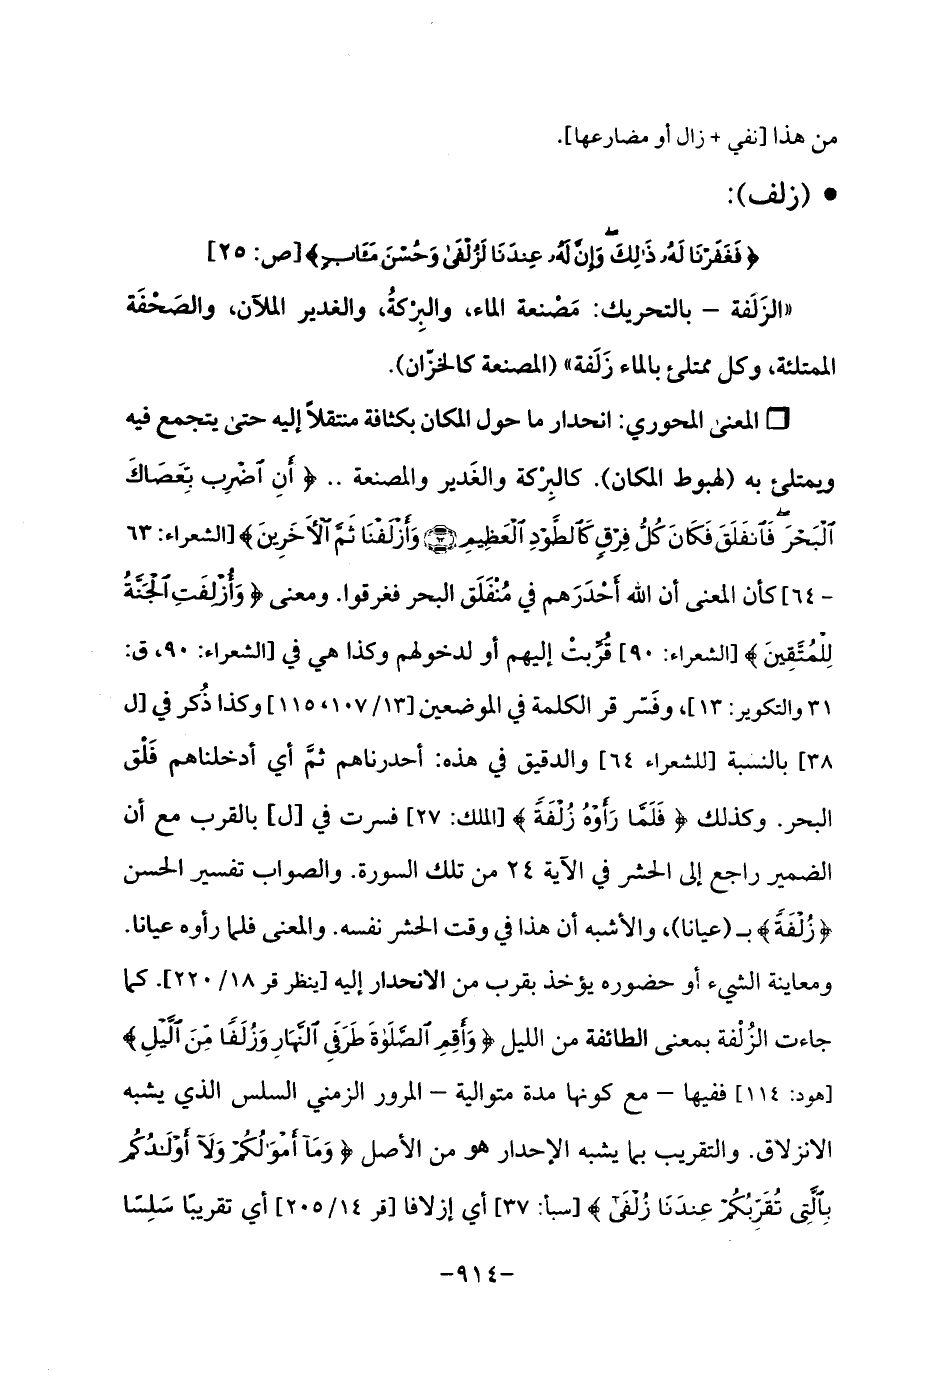 من هذا [نفي + زال أو مضارعها].
• (زلف):
﴿ فَغَفَرْنَا لَهُۥ ذَٰلِكَ ۖ وَإِنَّ لَهُۥ عِندَنَا لَزُلْفَىٰ وَحُسْنَ مَـَٔابٍ ﴾ [ص: ٢٥]
«الزَلَفة – بالتحريك: مَصْنعة الماء، والبِرْكةُ، والغدير الملآن، والصَحْفَة
الممتلئة، وكل ممتلئ بالماء زَلَفة» (المصنعة كالخزّان).
❑ المعنى المحوري: انحدار ما حول المكان بكثافة منتقلاً إليه حتى يتجمع فيه
ويمتلئ به (لهبوط المكان). كالبِرْكة والغَدير والمصنعة .. ﴿ أَنِ ٱضْرِب بِّعَصَاكَ
ٱلْبَحْرَ ۖ فَٱنفَلَقَ فَكَانَ كُلُّ فِرْقٍ كَٱلطَّوْدِ ٱلْعَظِيمِ ۝٦٣ وَأَزْلَفْنَا ثَمَّ ٱلْأَخَرِينَ ﴾ [الشعراء: ٦٣
– ٦٤] كأن المعنى أن الله أَحْدَرَهم في مُنْفَلَق البحر فغرقوا. ومعنى ﴿ وَأُزْلِفَتِ ٱلْجَنَّةُ
لِلْمُتَّقِينَ ﴾ [الشعراء: ٩٠] قُرِّبتْ إليهم أو لدخولهم وكذا هي في [الشعراء: ٩٠، ق:
٣١ والتكوير: ١٣]، وفَسّر قر الكلمة في الموضعين [١٣/ ١٠٧، ١١٥] وكذا ذُكر في [ل
٣٨] بالنسبة [للشعراء ٦٤] والدقيق في هذه: أحدرناهم ثَمَّ أي أدخلناهم فَلْق
البحر. وكذلك ﴿ فَلَمَّا رَأَوْهُ زُلْفَةً ﴾ [الملك: ٢٧] فسرت في [ل] بالقرب مع أن
الضمير راجع إلى الحشر في الآية ٢٤ من تلك السورة. والصواب تفسير الحسن
﴿ زُلْفَةً ﴾ بـ (عيانا)، والأشبه أن هذا في وقت الحشر نفسه. والمعنى فلما رأوه عيانا.
ومعاينة الشيء أو حضوره يؤخذ بقرب من الانحدار إليه [ينظر قر ١٨/ ٢٢٠]. كما
جاءت الزُلْفة بمعنى الطائفة من الليل ﴿ وَأَقِمِ ٱلصَّلَوٰةَ طَرَفَىِ ٱلنَّهَارِ وَزُلَفًا مِّنَ ٱلَّيْلِ ﴾
[هود: ١١٤] ففيها – مع كونها مدة متوالية – المرور الزمني السلس الذي يشبه
الانزلاق. والتقريب بما يشبه الإحدار هو من الأصل ﴿ وَمَآ أَمْوَٰلُكُمْ وَلَآ أَوْلَـٰدُكُم
بِٱلَّتِى تُقَرِّبُكُمْ عِندَنَا زُلْفَىٰٓ ﴾ [سبأ: ٣٧] أي إزلافا [قر ١٤/ ٢٠٥] أي تقريبًا سَلِسًا
-٩١٤-